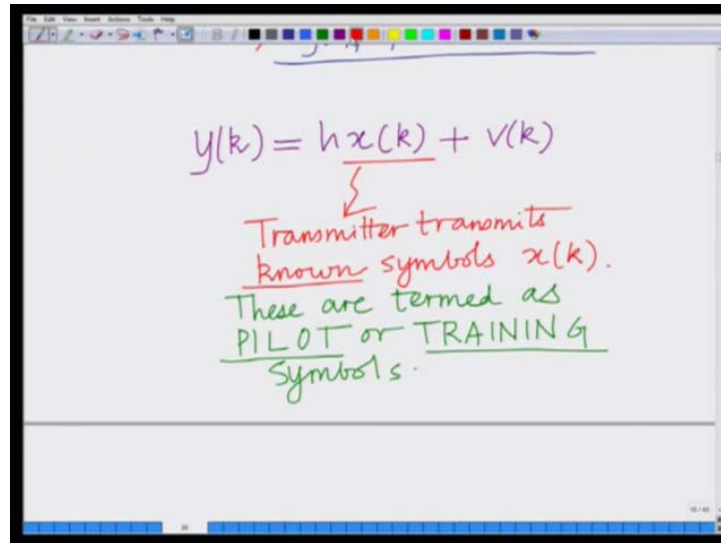 File Edit View Insert Actions Tools Help
y(k) = hx(k) + v(k)
Transmitter transmits
known symbols x(k).
These are termed as
PILOT or TRAINING
symbols.